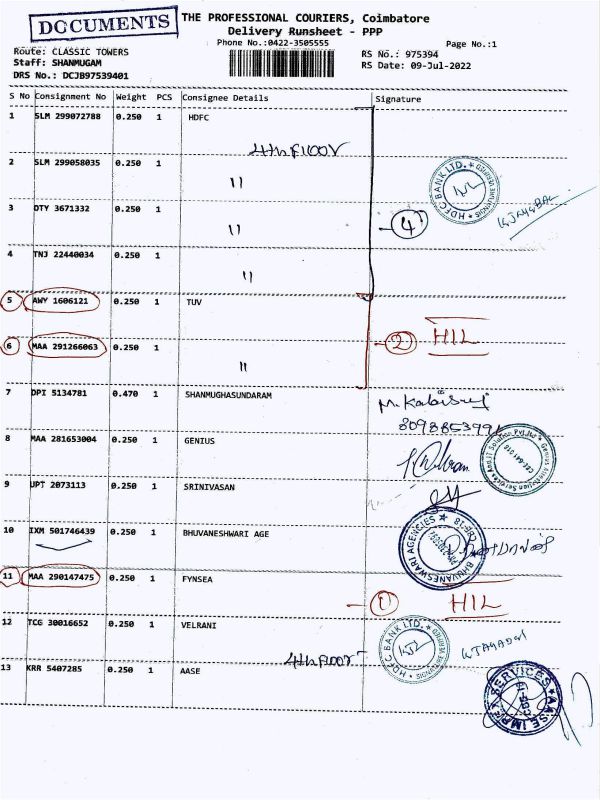 DOCUMENTS
THE PROFESSIONAL COURIERS, Coimbatore
Delivery Runsheet - PPP
Phone No.:0422-3505555
Page No.:1
Route: CLASSIC TOWERS
RS No.: 975394
Staff: SHANMUGAM
RS Date: 09-Jul-2022
DRS No.: DCJB97539401
S No Consignment No Weight PCS Consignee Details Signature
1 SLM 299072788 0.250 1 HDFC
4th Floor
2 SLM 299058035 0.250 1
"
HDFC BANK LTD.
3 DTY 3671332 0.250 1
"
4
4 TNJ 22440034 0.250 1
"
5 AWY 1606121 0.250 1 TUV
2 HIL
6 MAA 291266063 0.250 1
"
7 DPI 5134781 0.470 1 SHANMUGHASUNDARAM
8 MAA 281653004 0.250 1 GENIUS
9 UPT 2073113 0.250 1 SRINIVASAN
10 IXM 501746439 0.250 1 BHUVANESHWARI AGE
BHUVANESWARI AGENCIES
11 MAA 290147475 0.250 1 FYNSEA
1 HIL
12 TCG 30016652 0.250 1 VELRANI
HDFC BANK LTD.
4th Floor
13 KRR 5407285 0.250 1 AASE
AASE IMPEX SERVICES